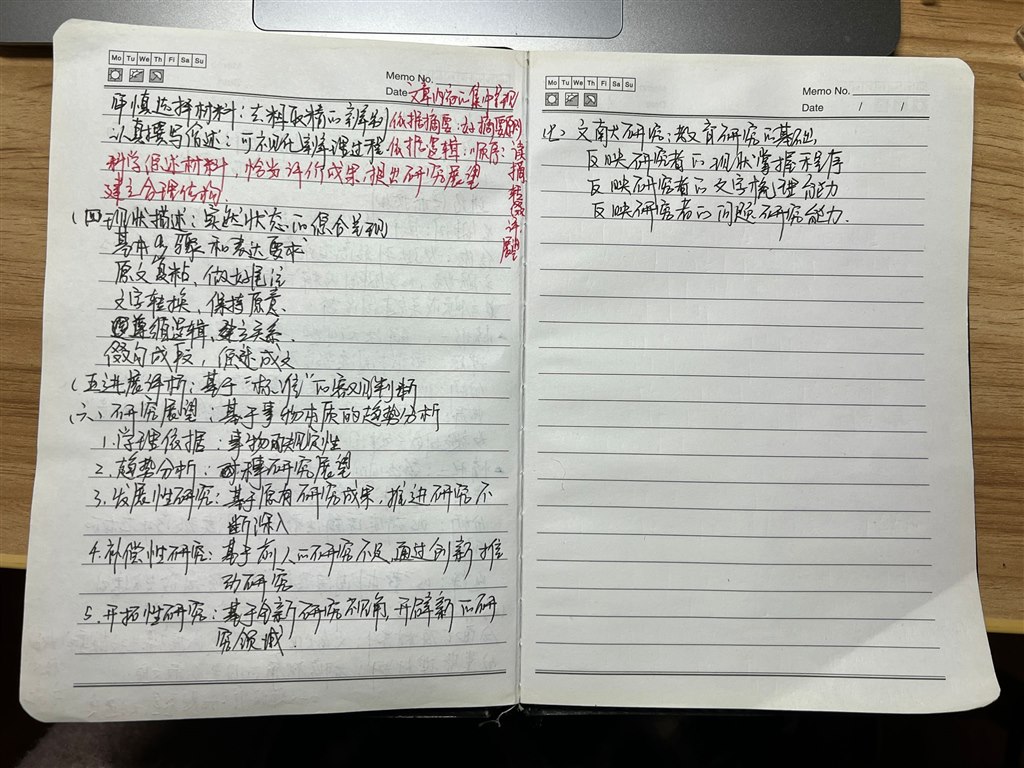 Mo Tu We Th Fi Sa Su
Memo No.
Date
文章内容的集中呈现
审慎选择材料：去粗取精的
依据摘要：好摘要
认真撰写综述：可不可
梳理过程
依据逻辑：顺序：读
摘
转
评
展
科学综述材料，恰当评价成果，提出研究展望
建立合理结构
(四)现状描述：实然状态的综合呈现
基本步骤和表达要求
原文复粘、做好尾注
文字转换、保持原意
遵循逻辑、建立关系
缀句成段，综述成文
(五)进展评析：基于“标准”的客观判断
(六)研究展望：基于事物本质的趋势分析
1.学理依据：事物的规定性
2.趋势分析：研究展望
3.发展性研究：基于原有研究成果，推进研究不
断深入
4.补偿性研究：基于前人的研究不足，通过创新推
动研究
5.开拓性研究：基于全新研究视角，开辟新的研
究领域.
Mo Tu We Th Fi Sa Su
Memo No.
Date / /
(七)文献研究：教育研究的基础
反映研究者的现状掌握程序
反映研究者的文字梳理能力
反映研究者的问题研究能力.